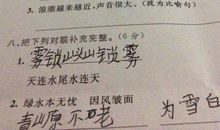 3. 浪潮越来越近，声音很大。（改为比喻句）
八、把下列对联补充完整。（6分）
1. 雾锁山头山锁雾
天连水尾水连天
2. 绿水本无忧 因风皱面
青山原不老 为雪白